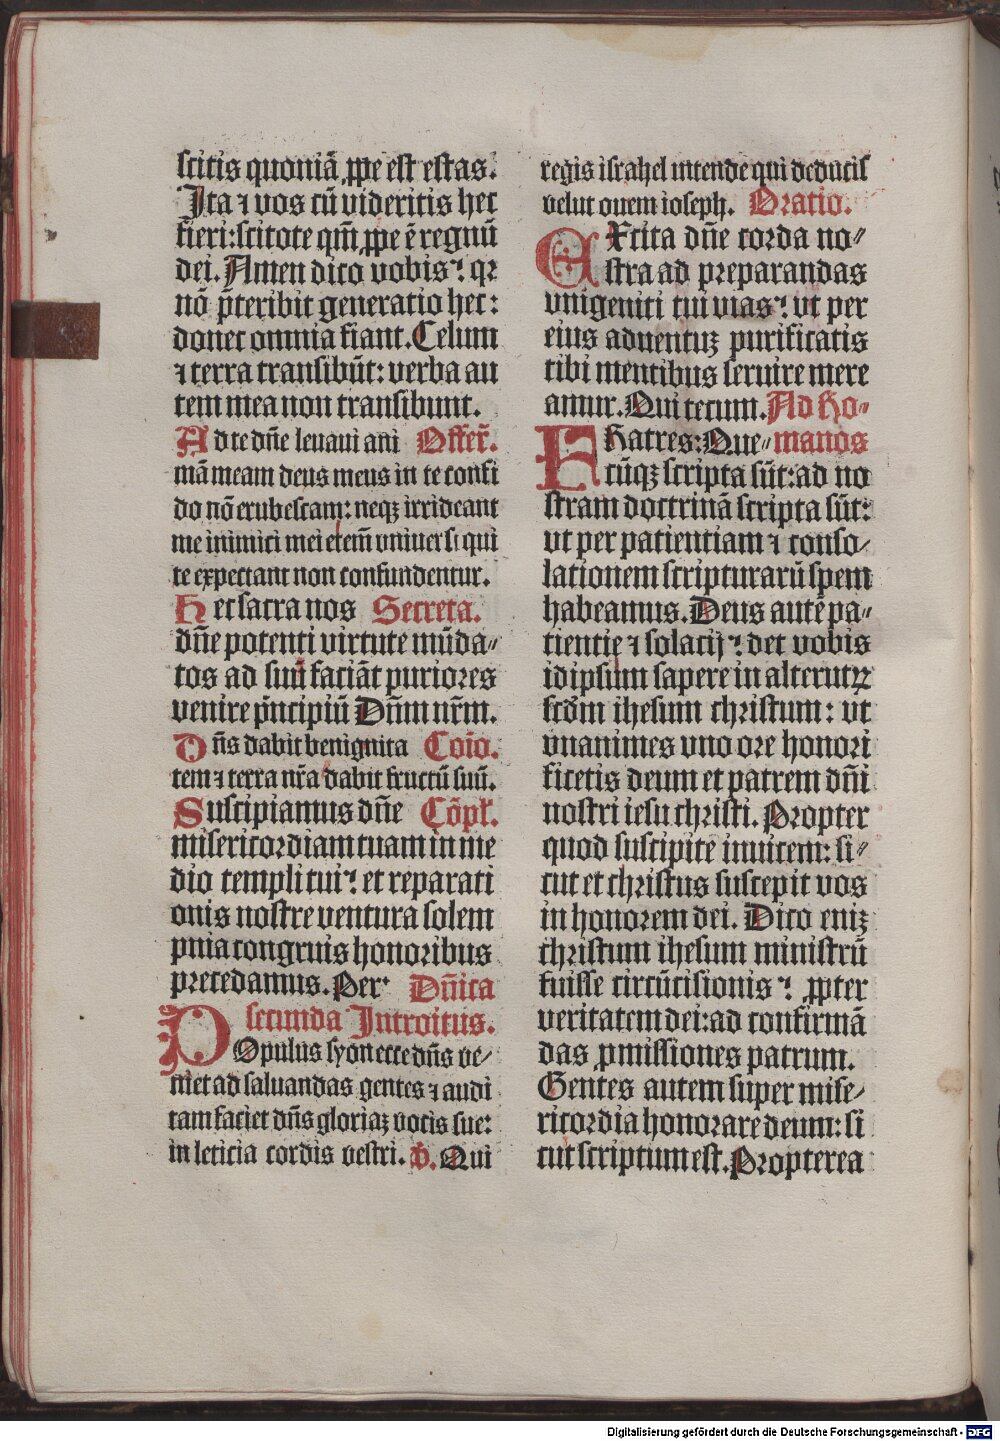 scitis quoniā ꝓpe est estas.
Ita ⁊ vos cū videritis hec
fieri: scitote qm̄ ꝓpe ē regnū
dei. Amen dico vobis: qꝛ
nō p̄teribit generatio hec:
donec omnia fiant. Celum
⁊ terra transibūt: verba au
tem mea non transibunt.
Ad te dn̄e leuaui ani Offer̄.
mā meam deus meus in te confi
do nō erubescam: neqꝫ irrideant
me inimici mei eteni̅ vniuersi qui
te expectant non confundentur.
Hec sacra nos Secreta.
dn̄e potenti virtute mūda-
tos ad suū faciāt puriores
venire p̄ncipiū Dn̄m nr̄m.
Dn̄s dabit benignita Cōio.
tem ⁊ terra nr̄a dabit fructū suū.
Suscipiamus dn̄e Cōpl̄.
misericordiam tuam in me
dio templi tui: et reparati
onis nostre ventura solem
pnia congruis honoribus
precedamus. Per Dn̄ica
secunda Introitus.
POpulus syon ecce dn̄s ve-
niet ad saluandas gentes ⁊ audi
tam faciet dn̄s gloriaꝫ vocis sue:
in leticia cordis vestri. v̄. Qui
regis israhel intende qui deducis
velut ouem ioseph. Oratio.
EXcita dn̄e corda no-
stra ad preparandas
vnigeniti tui vias: vt per
eius aduentuꝫ purificatis
tibi mentibus seruire mere
amur. Qui tecum. Ad Ro-
FRatres: Que- manos
cūqꝫ scripta sūt: ad no
stram doctrinā scripta sūt:
vt per patientiam ⁊ conso-
lationem scripturarū spem
habeamus. Deus autē pa-
tientie ⁊ solacij: det vobis
idipsum sapere in alterutꝝ
scd̄m ihesum christum: vt
vnanimes vno ore honori
ficetis deum et patrem dn̄i
nostri iesu christi. Propter
quod suscipite inuicem: si-
cut et christus suscepit vos
in honorem dei. Dico eniꝫ
christum ihesum ministrū
fuisse circūcisionis: ꝓpter
veritatem dei: ad confirmā
das ꝓmissiones patrum.
Gentes autem super mise-
ricordia honorare deum: si
cut scriptum est. Propterea
Digitalisierung gefördert durch die Deutsche Forschungsgemeinschaft - DFG